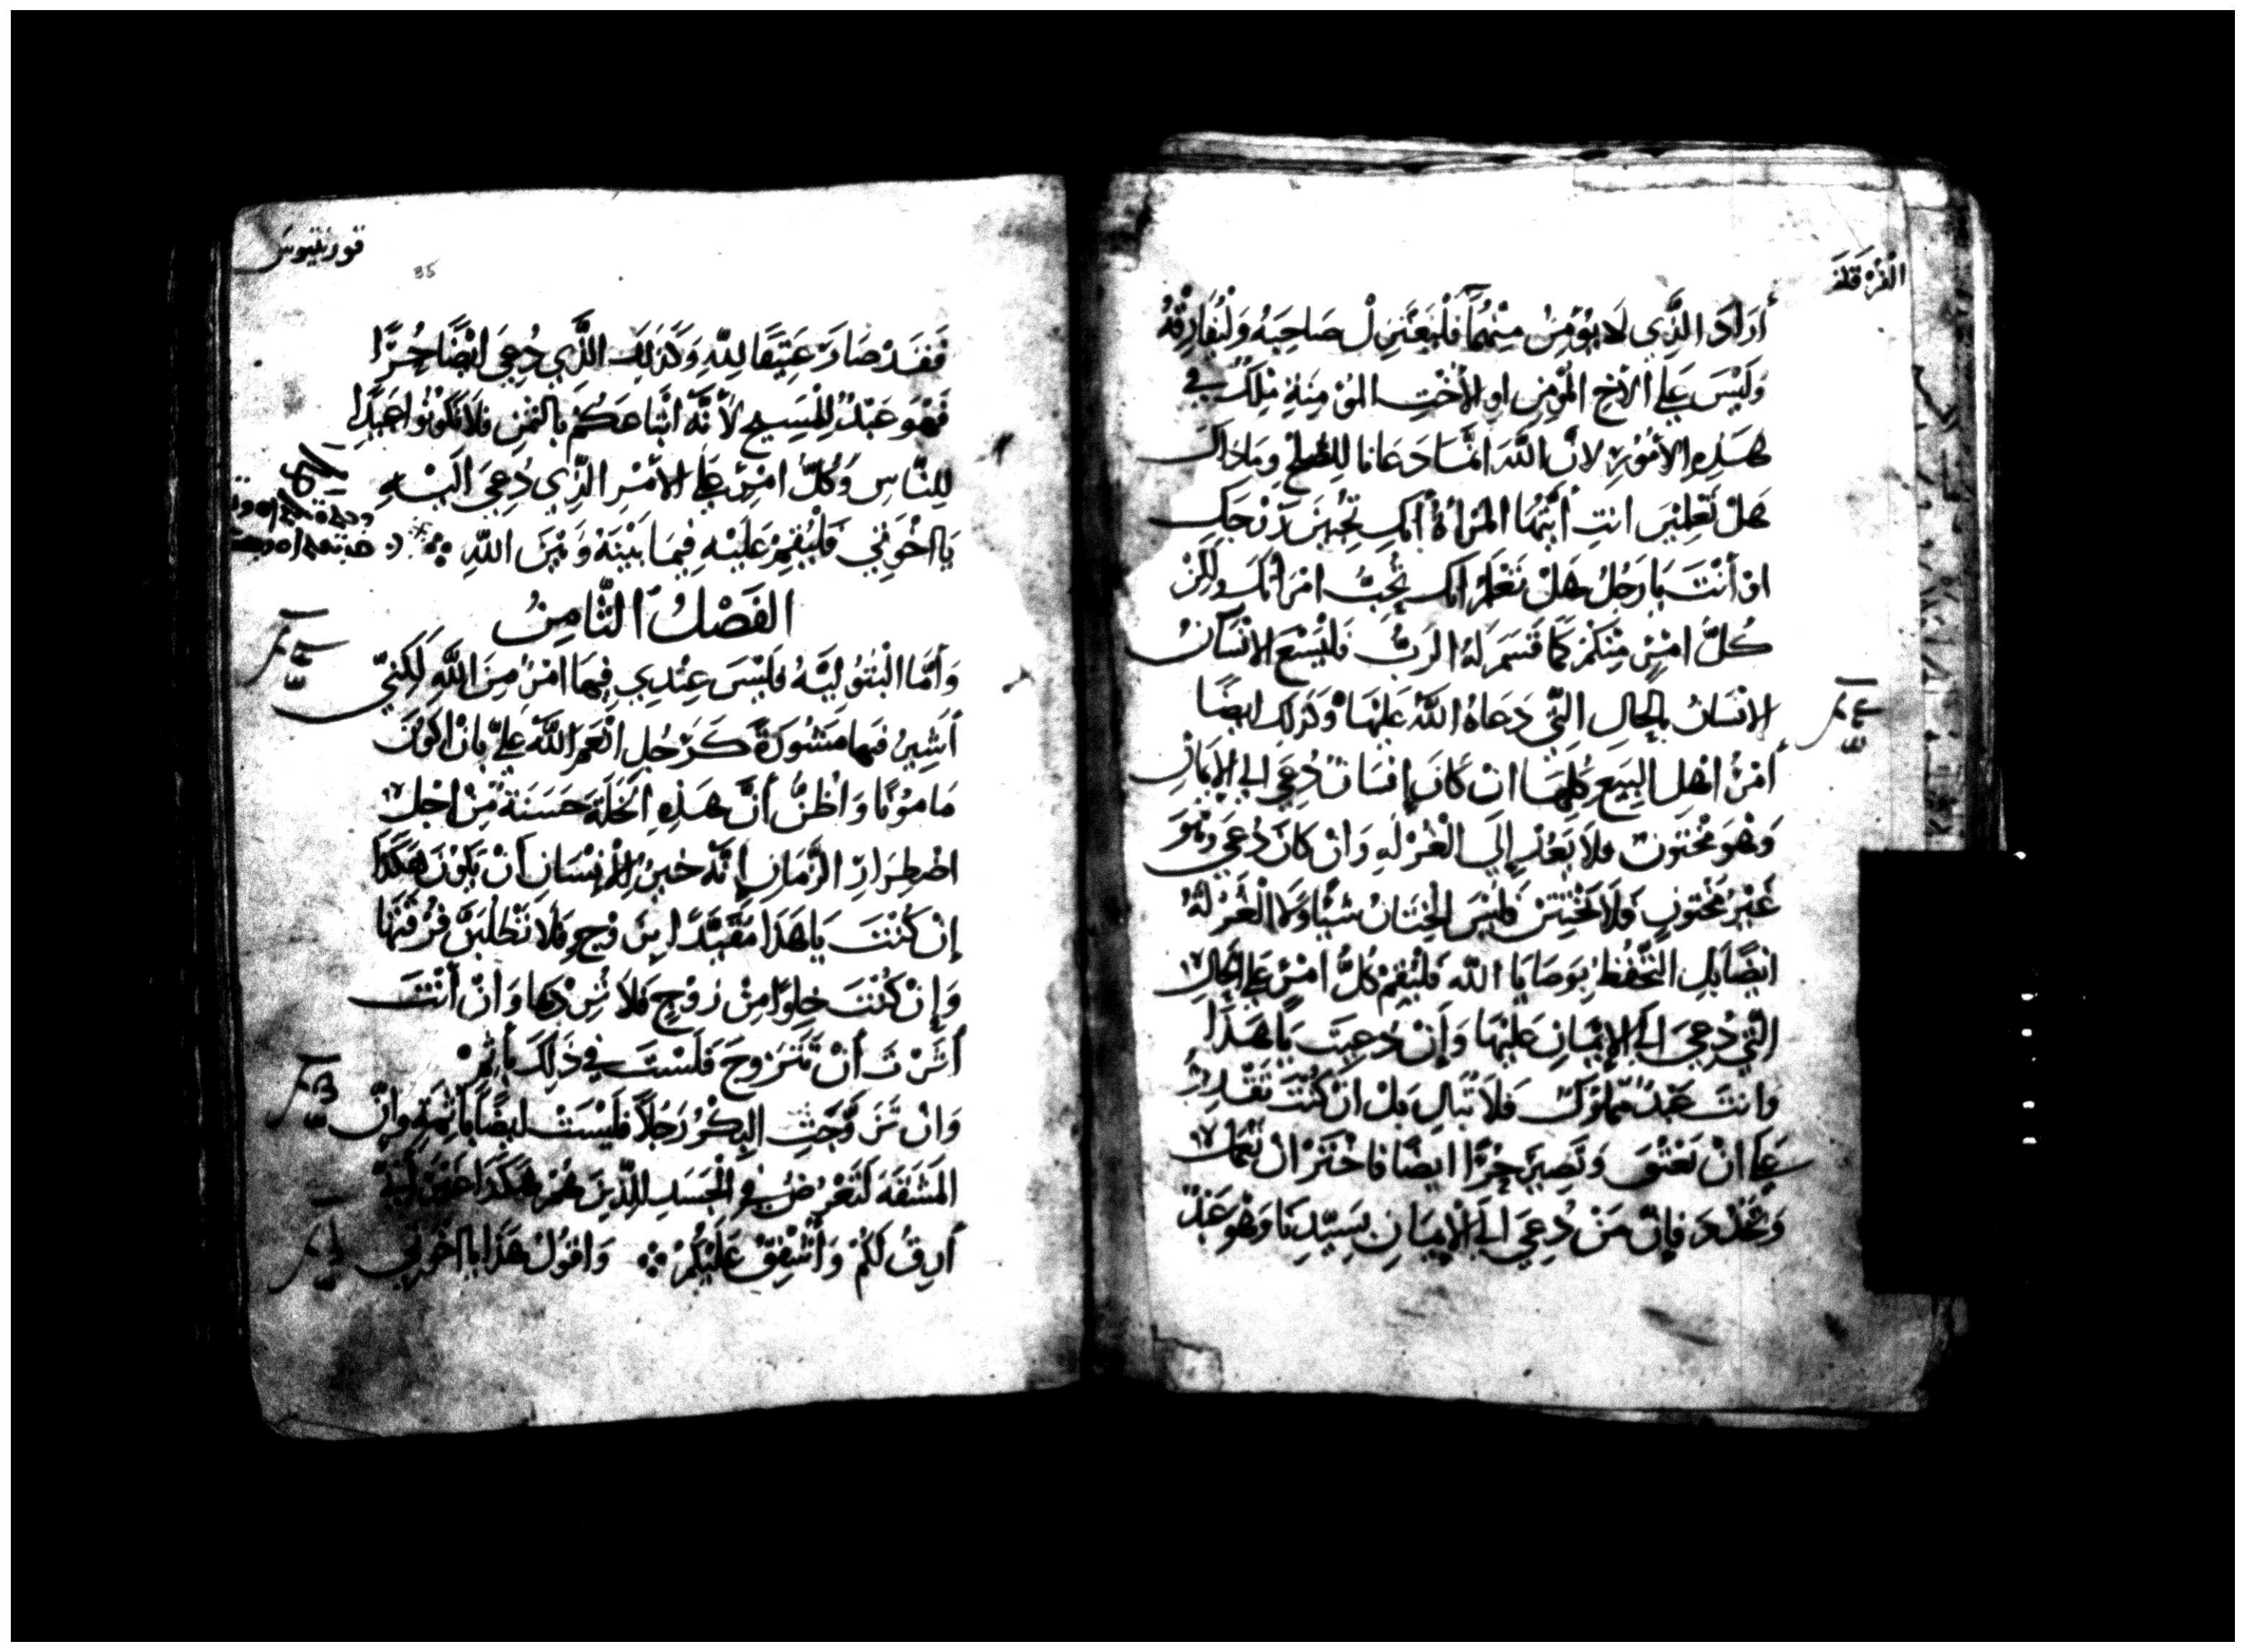 أَرَادَ الذَّي لَا يُؤمِنُ مِنْهُمَا فَلْيَعْتَزِلْ صَاحِبَهُ وَلْيُفَارِقْهُ
وَلَيْسَ عَلى الأخِ المُؤْمِنِ اوِ الأُخْتِ المُؤْمِنَةِ مِلْكٌ في
هَذِهِ الأُمُورِ لانَّ اللَّهَ انَّمَا دَعَانا لِلصُّلْحِ وَمَاذاك
هَلْ تَعْلَمِيْنَ انتِ أيَّتُهَا المَرْأةُ أنَّكِ تُحْيِيْنَ زَوْجَكِ
اوْ أنْتَ يَا رَجُلُ هَلْ تَعْلَمُ انَّك تُحْيِي امْرَاتَكَ ولكن
كُلُّ امْرِئٍ مِّنكُمْ كَمَا قَسَمَ لَهُ الرَبُّ فَليَسْعَ الانْسَانُ
الانْسَانُ بالحَالِ التَّي دَعَاهُ اللَّهُ عَليْهَا وَكذلِكَ ايضًا
أمْرُ اهْلِ البِيَعِ كُلِّهَا انْ كَانَ إنْسَانٌ دُعِيَ الى الايمَانِ
وَهْوَ مَخْتُونٌ فلا يَعُدْ إلَى الْغُرْلَةِ وَانْ كَانَ دُعِيَ وَهْوَ
غَيْرُ مَخْتُونٍ فَلَا يَخْتَتِنْ فَلَيْسَ الخِتَانُ شَيْاً وَلَا الْغُرْلَةُ
ايضًا بَلِ التَّحَفُّظُ بِوَصَايَا اللَّه فَلْيُقِمْ كُلُّ امْرِئٍ عَلى الحَالِ
التَّي دُعِيَ الَى الإيْمَانِ عَلَيْهَا وَإنْ دُعِيتَ يَا هَذَا
وَانتَ عَبْدٌ مَمْلُوكٌ فَلَا تُبَالِ بَلْ انْ كُنْتَ تَقْدِرُ
عَلَى انْ تَعْتُقَ وَتَصِيرَ حُرًّا ايضًا فَاخْتَرْ انْ تَعْمَلَ
وَتَخْدُمَ فإنَّ مَنْ دُعِيَ الَى الْايمَانِ بِسَيِّدِنَا وَهْوَ عَبْدٌ
قورنثيوس
35
فَقَدْ صَارَ عَتِيقًا لِلّهِ وَكَذلِكَ الذَّي دُعِيَ ايْضًا حُرًّا
فَهْوَ عَبْدٌ لِلْمَسِيحِ لأَنَّهُ ابْتَاعَكُمْ بِالثمَنِ فَلَا تَكُونُوا عَبِيدًا
لِلنَّاسِ وَكُلُّ امْرِئٍ عَلى الأمْرِ الذِّي دُعِيَ الَيْهِ
يَا اخْوَتِي فَلْيُقِمْ عَلَيْهِ فِيمَا بَيْنَهُ وَبَيْنَ اللّهِ
الفَصْلُ الثَّامِنُ
وَأمَّا الْبُتُوليَّةُ فَلَيْسَ عِنْدِي فِيهَا امْرٌ مِنَ اللَّهِ لَكِنِّي
أشِيرُ فيها مَشُورَةً كَرَجُلٍ انْعَمَ اللَّه عَليَّ بِانْ اكُونَ
مَامُونًا وَاظُنُّ أنَّ هَذِهِ الخَلَّةَ حَسَنَةٌ مِنْ اجْلِ
اضْطِرَارِ الزَّمَانِ إنَّهُ خَيرٌ لِلْإنْسَانِ أنْ يَكُونَ هَكَذَا
إنْ كُنْتَ يَا هَذَا مُقَيَّدًا بِزَوْجٍ فلَا تَطْلُبَنَّ فُرْقَتَهَا
وَإنْ كُنْتَ خِلْوًا مِنْ زَوْجٍ فَلَا تُرِدْهَا وَانْ أنْتَ
أثَرْتَ أنْ تَتَزَوَّجَ فَلَسْتَ في ذَلِكَ بِأثِمْ
وَانْ تَزَوَّجَتِ البِكْرُ رَجُلاً فَلَيْسَتْ ايضًا بِاثِمَةٍ وَإنَّ
المَشَقَّةَ لَتَعْرُضُ فِي الْجَسَدِ للِذِّينَ هُمْ هَكَذَا
أرِقُ لَكُمْ وَأشْفِقُ عَلَيْكُمْ وَاقُولُ هَذَا يَا اخْوَتِي